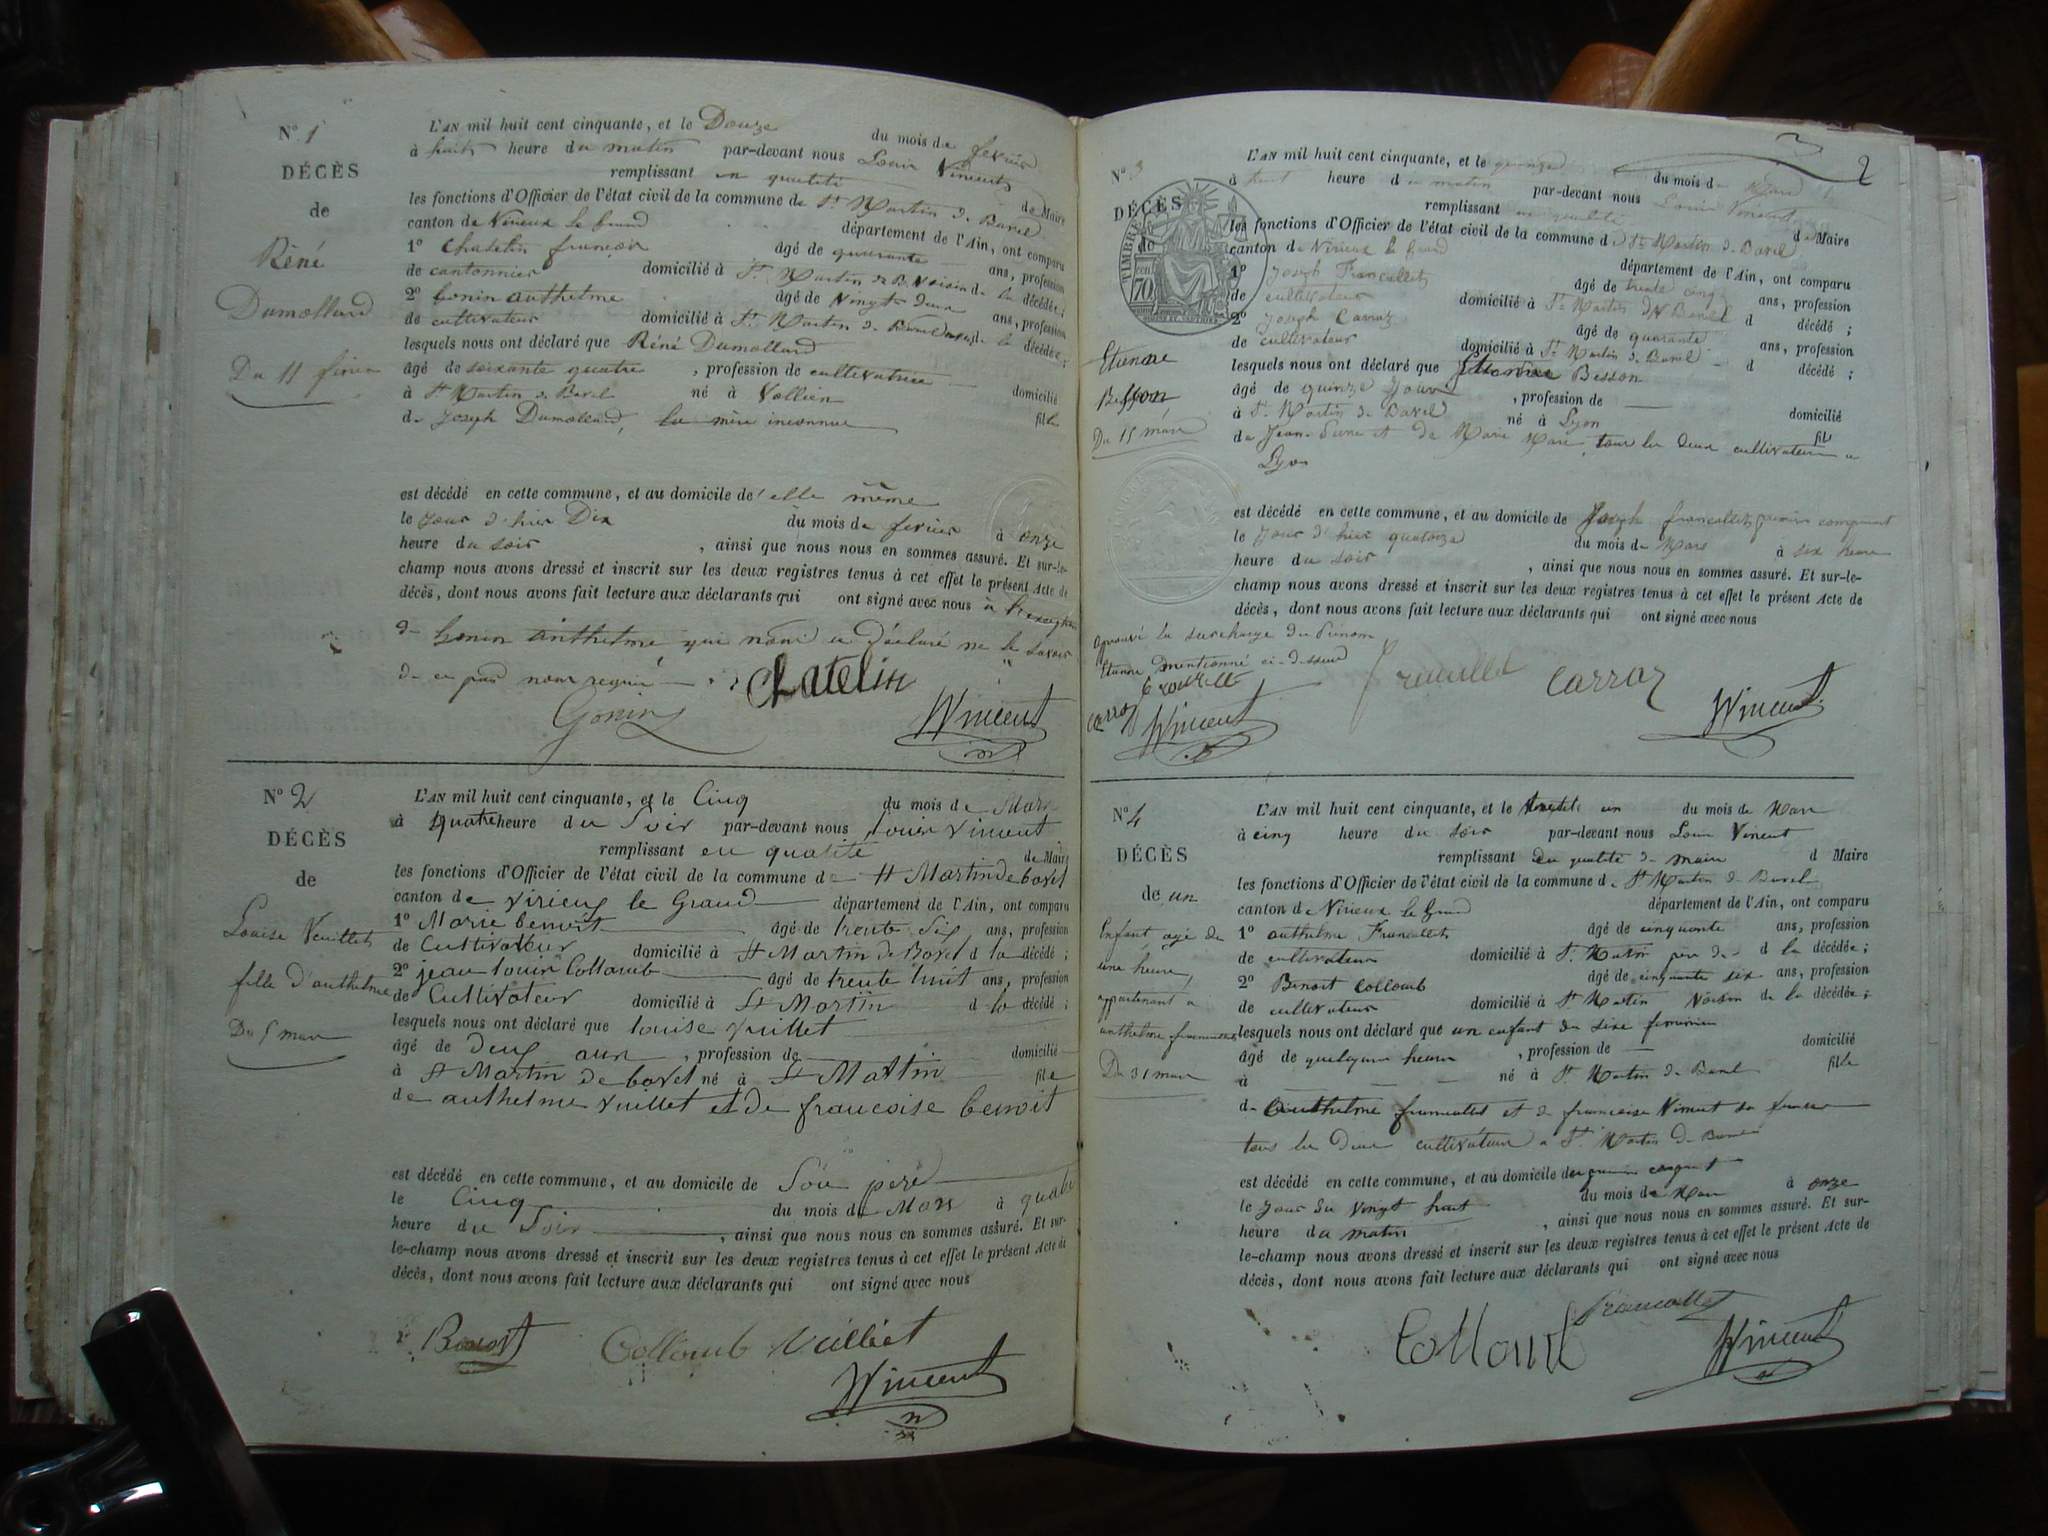 N° 1
DÉCÈS
de
Réné
Dumollard
Du 11
L'AN mil huit cent cinquante, et le Douze du mois de fevrier
à huit heure du matin par-devant nous Louis Vincent
remplissant en qualité de Maire
les fonctions d'Officier de l'état civil de la commune de St Martin de Bavel
canton de Virieux le Grand département de l'Ain, ont comparu
1° Chatelin françois âgé de quarante ans, profession
de cantonnier domicilié à St Martin de B voisin de la décédée;
2° Gonin anthelme âgé de vingt deux ans, profession
de cultivateur domicilié à St Martin de Bavel de la décédée;
lesquels nous ont déclaré que Réné Dumollard
âgé de soixante quatre, profession de cultivatrice domicilié
à St Martin de Bavel né à Vollien
de Joseph Dumollard, la mère inconnue fille
est décédé en cette commune, et au domicile de elle même
le jour d'hier Dix du mois de fevrier à onze
heure du soir, ainsi que nous nous en sommes assuré. Et sur-le-
champ nous avons dressé et inscrit sur les deux registres tenus à cet effet le présent Acte de
décès, dont nous avons fait lecture aux déclarants qui ont signé avec nous à
de Gonin anthelme qui nous a déclaré ne le savoir
de ce pas nous requis
Chatelin
Gonin
Vincent
N° 2
DÉCÈS
de
Louise Vuillet
fille d'anthelme
Du 5 mars
L'AN mil huit cent cinquante, et le Cinq du mois de Mars
à quatre heure du Soir par-devant nous Louis Vincent
remplissant en qualité de Maire
les fonctions d'Officier de l'état civil de la commune de St Martin de bavel
canton de virieux le Grand département de l'Ain, ont comparu
1° Marie benoit âgé de trente Six ans, profession
de Cultivateur domicilié à St Martin de Bavel d la décédé;
2° jean louis Collomb âgé de trente huit ans, profession
de Cultivateur domicilié à St Martin d la décédé;
lesquels nous ont déclaré que louise vuillet
âgé de deux ans, profession de domicilié
à St Martin de bavel né à St Martin fille
de anthelme vuillet et de francoise benoit
est décédé en cette commune, et au domicile de Son père
le Cinq du mois de Mars à quatre
heure du Soir, ainsi que nous nous en sommes assuré. Et sur-
le-champ nous avons dressé et inscrit sur les deux registres tenus à cet effet le présent Acte de
décès, dont nous avons fait lecture aux déclarants qui ont signé avec nous
Benoit Collomb Vuilliet
Vincent
2
N° 3
DÉCÈS
de
TIMBRE
70
Etienne
Besson
Du 15 mars
L'AN mil huit cent cinquante, et le quinze du mois de Mars
à huit heure du matin par-devant nous Louis Vincent
remplissant en qualité de Maire
les fonctions d'Officier de l'état civil de la commune de St Martin de Bavel
canton de Virieux le Grand département de l'Ain, ont comparu
1° Joseph Francallet âgé de trente cinq ans, profession
de cultivateur domicilié à St Martin de Bavel d décédé;
2° Joseph Carraz âgé de quarante ans, profession
de cultivateur domicilié à St Martin de Bavel d décédé;
lesquels nous ont déclaré que Etienne Besson
âgé de quinze jours, profession de domicilié
à St Martin de Bavel né à Lyon fils
de Jean et de Marie tous les deux cultivateurs a
Lyon
est décédé en cette commune, et au domicile de Joseph francallet premier comparant
le jour d'hier quatorze du mois de Mars à six heure
heure du soir, ainsi que nous nous en sommes assuré. Et sur-le-
champ nous avons dressé et inscrit sur les deux registres tenus à cet effet le présent Acte de
décès, dont nous avons fait lecture aux déclarants qui ont signé avec nous
aprouvé la surcharge du Prénom
Etienne mentionné ci-dessus
carraz Vincent
Carraz
Vincent
N° 4
DÉCÈS
de un
Enfant agé de
une heure,
appartenant a
anthelme
Du 31 mars
L'AN mil huit cent cinquante, et le trente un du mois de Mars
à cinq heure du soir par-devant nous Louis Vincent
remplissant en qualité de maire d Maire
les fonctions d'Officier de l'état civil de la commune de St Martin de Bavel
canton de Virieux le Grand département de l'Ain, ont comparu
1° anthelme Francallet âgé de cinquante ans, profession
de cultivateur domicilié à St Martin père de d la décédée;
2° Benoit Collomb âgé de cinquante six ans, profession
de cultivateur domicilié à St Martin voisin de la décédée;
lesquels nous ont déclaré que un enfant du sexe feminin
âgé de quelques heures, profession de domicilié
à né à St Martin de Bavel fille
de anthelme francallet et de francoise Vincent sa femme
tous les deux cultivateurs a St Martin de Bavel
est décédé en cette commune, et au domicile du premier comparant
le jour du vingt huit du mois de Mars à onze
heure du matin, ainsi que nous nous en sommes assuré. Et sur-
le-champ nous avons dressé et inscrit sur les deux registres tenus à cet effet le présent Acte de
décès, dont nous avons fait lecture aux déclarants qui ont signé avec nous
Collomb Francallet
Vincent